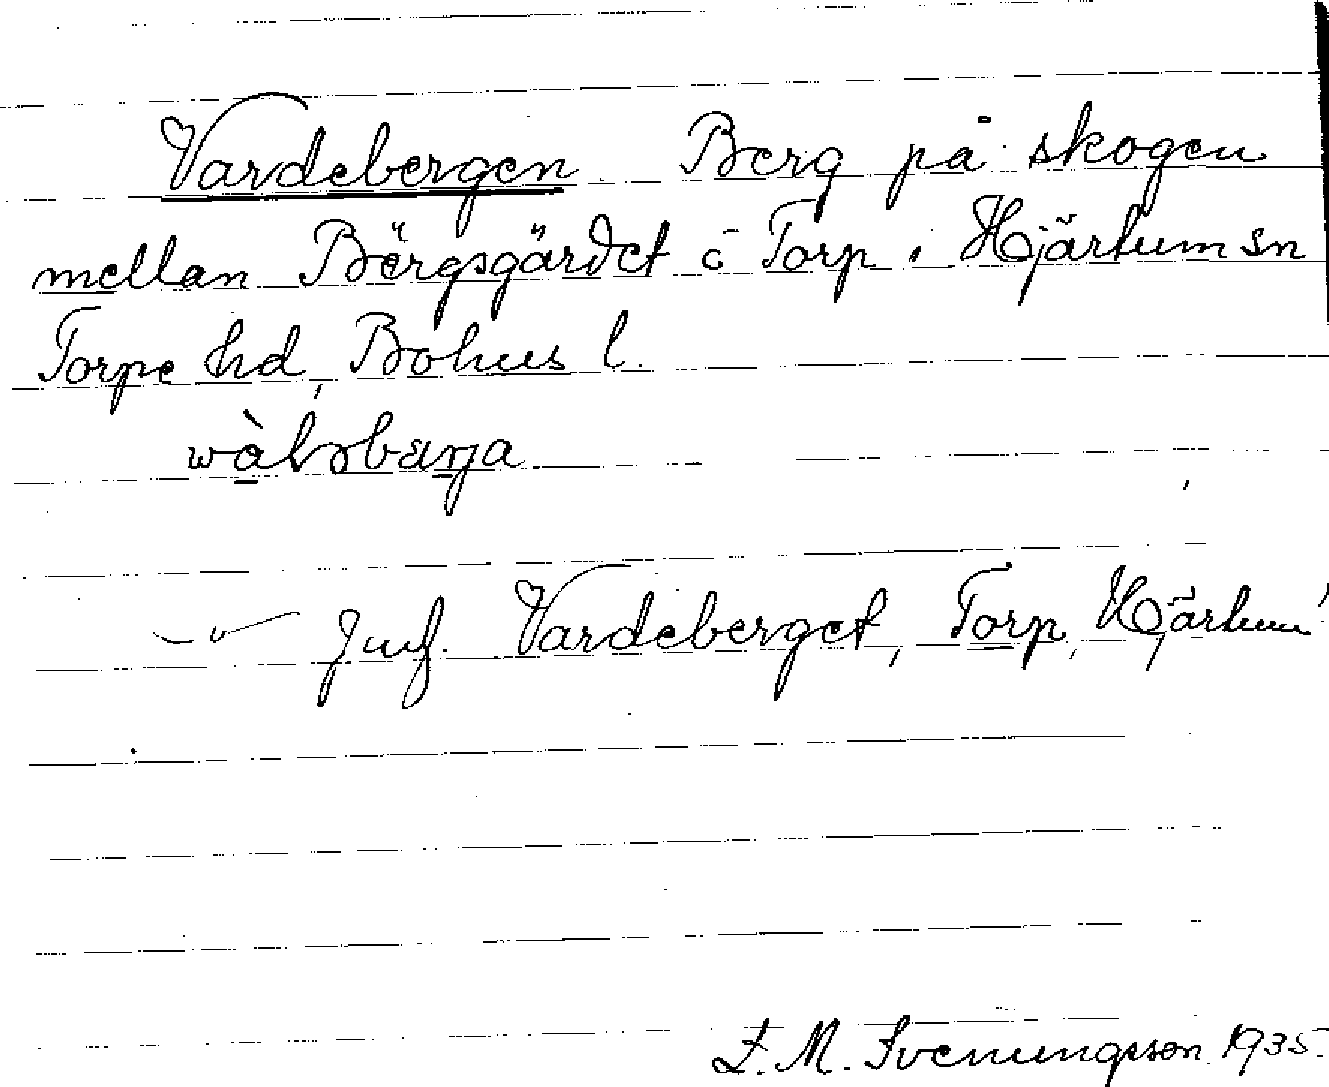 Vardebergen Berg på skogen
mellan Bergsgärdet o Torp i Hjärtum sn
Torpe hd, Bohus l.
Jmf. Vardeberget, Torp, Hjärtum
E. M. Svenungsson 1935.